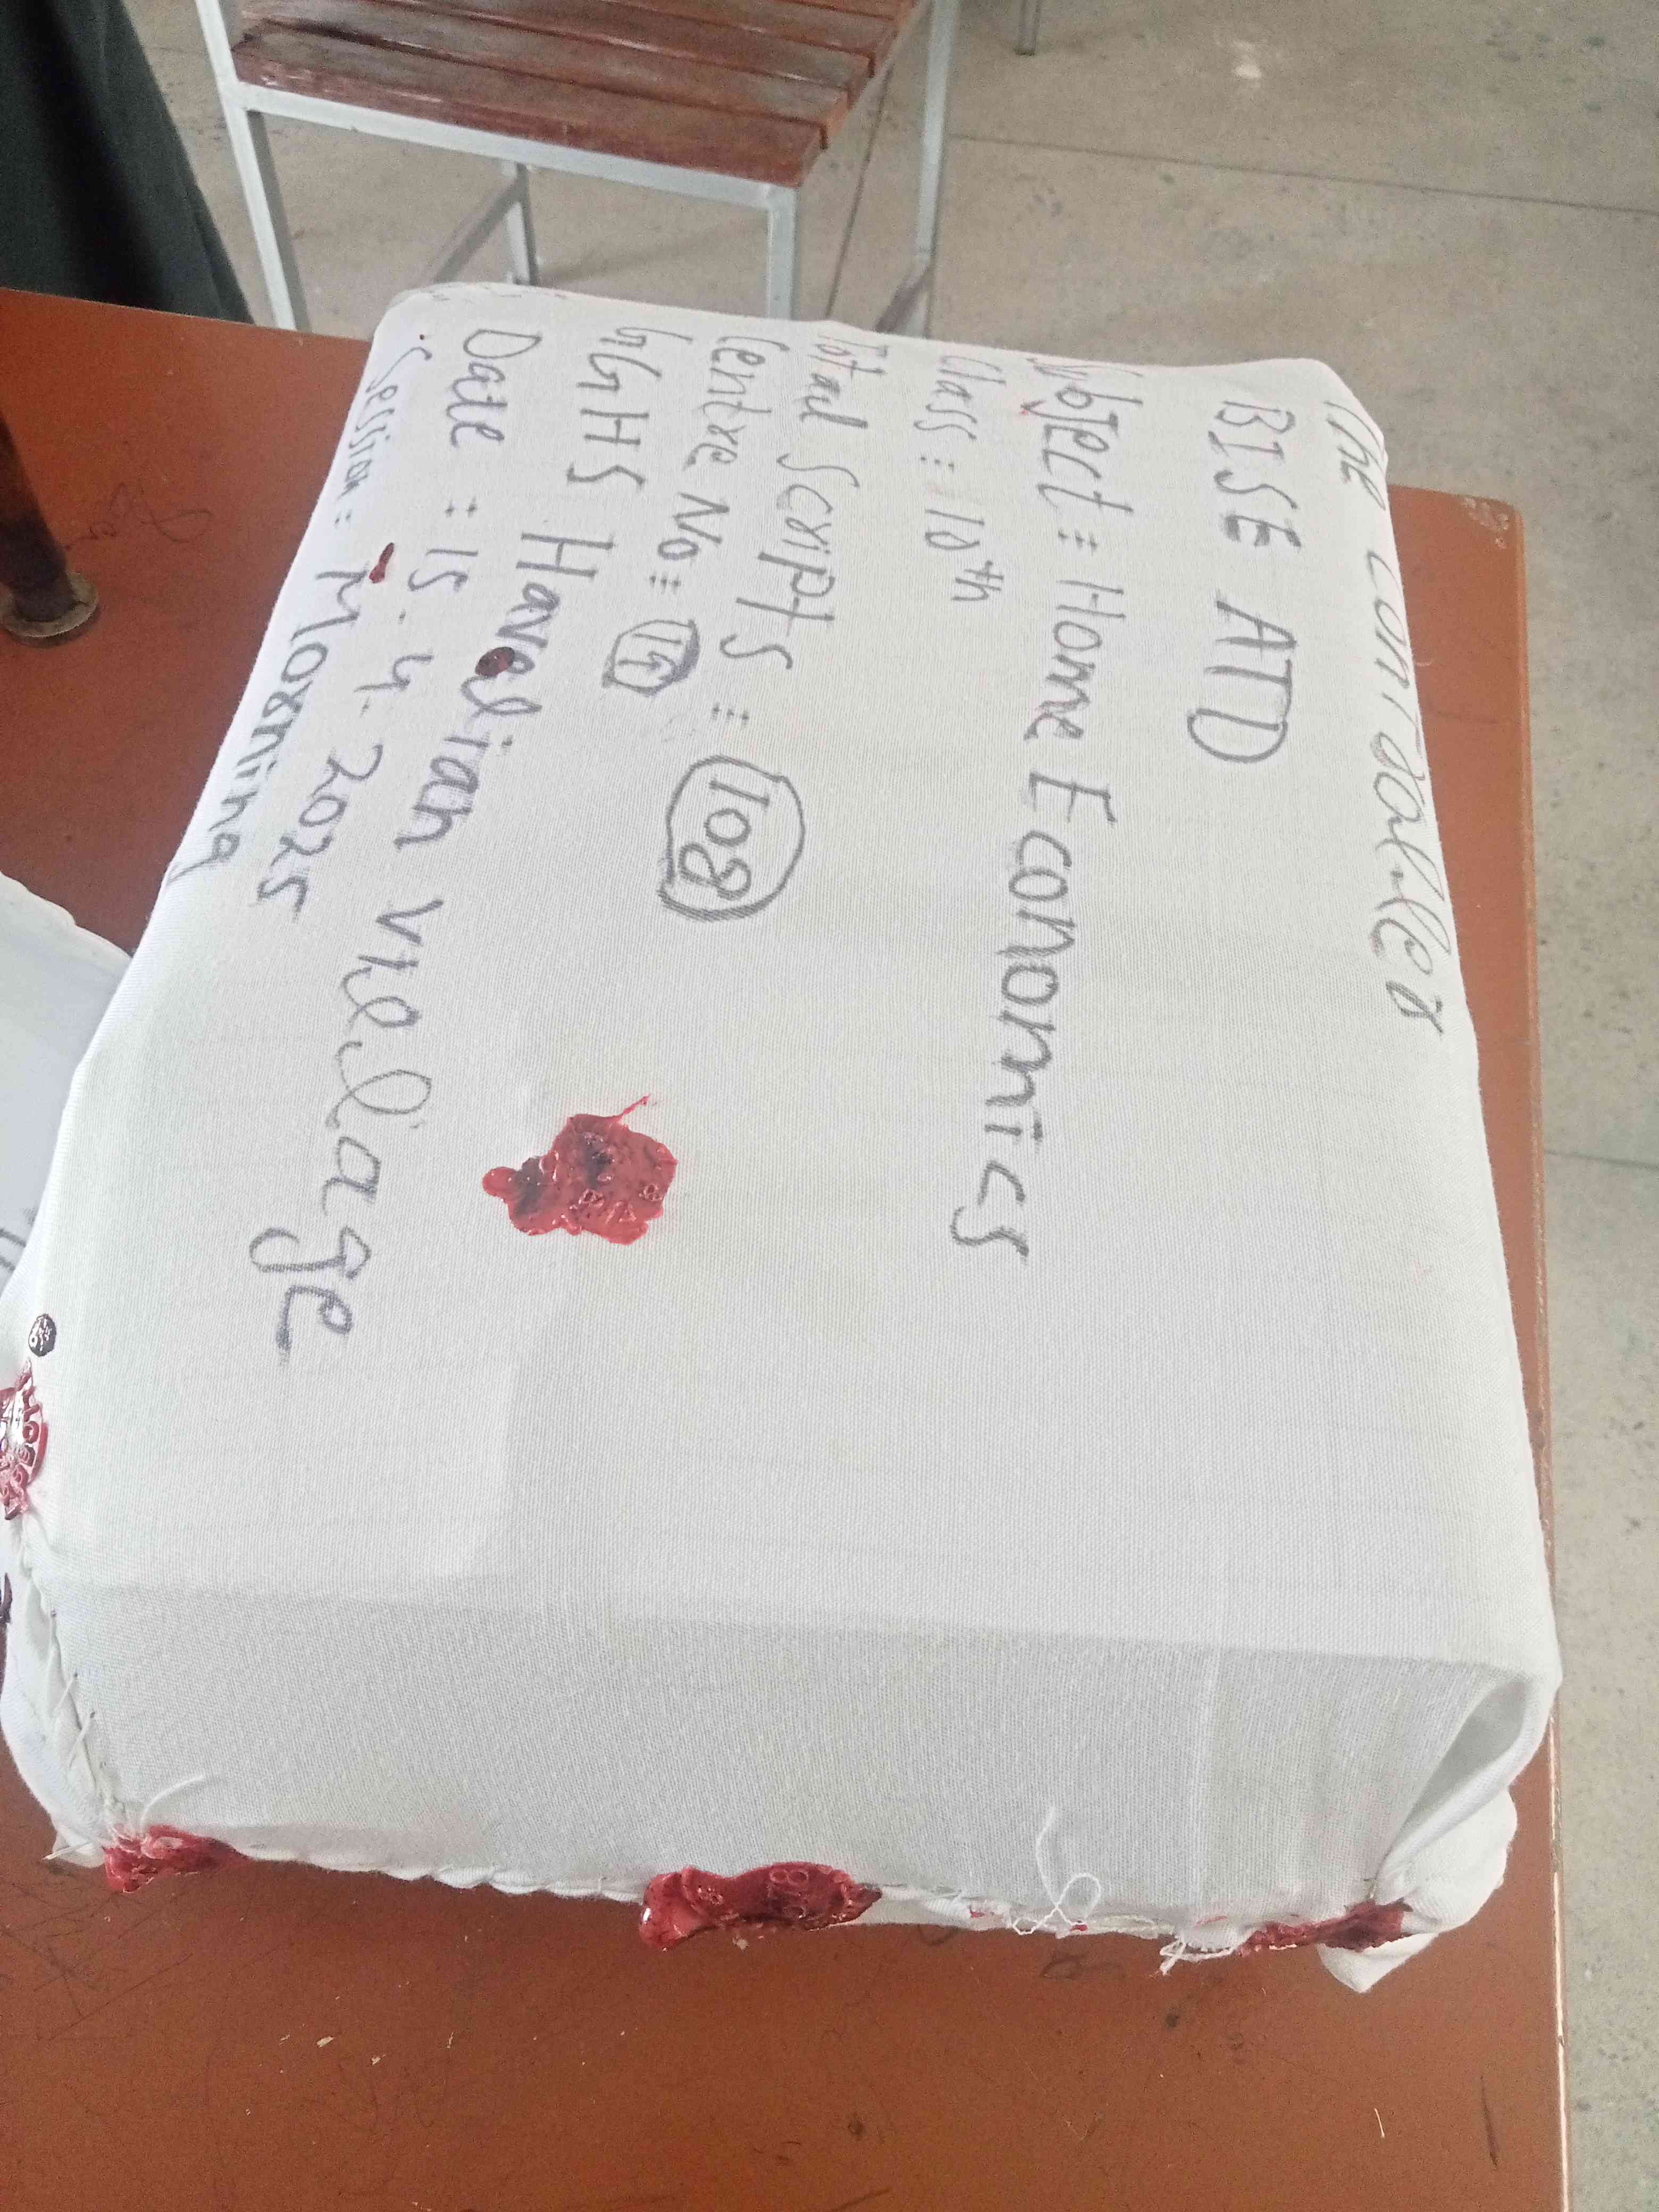 The Controller
BISE ATD
Subject = Home Economics
Class = 10th
Total Scripts = 108
Centre No =
GGHS Havelian Viellage
Date = 15.4.2025
Session = Morning